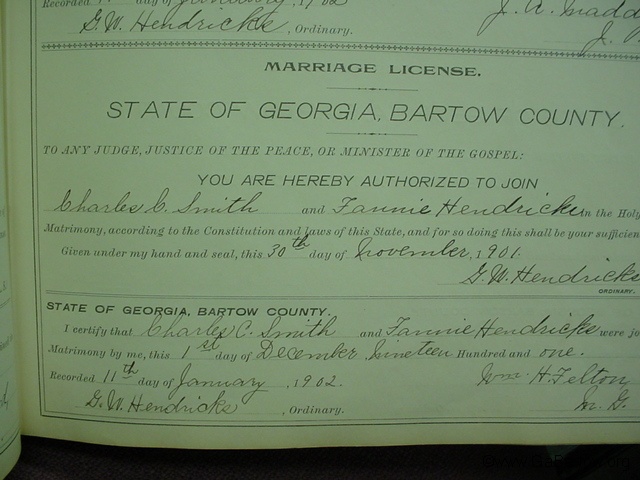 Recorded day of January, 1902 J. A. Madd
G. W. Hendricks, Ordinary. J.
MARRIAGE LICENSE.
STATE OF GEORGIA, BARTOW COUNTY.
TO ANY JUDGE, JUSTICE OF THE PEACE, OR MINISTER OF THE GOSPEL:
YOU ARE HEREBY AUTHORIZED TO JOIN
Charles C. Smith and Fannie Hendricks in the Holy
Matrimony, according to the Constitution and laws of this State, and for so doing this shall be your sufficien
Given under my hand and seal, this 30th day of November, 1901.
G. W. Hendricks
ORDINARY.
STATE OF GEORGIA, BARTOW COUNTY.
I certify that Charles C. Smith and Fannie Hendricks were jo
Matrimony by me, this 1st day of December Nineteen Hundred and one.
Recorded 11th day of January, 1902. Wm. H. Felton
G. W. Hendricks, Ordinary. M. G.